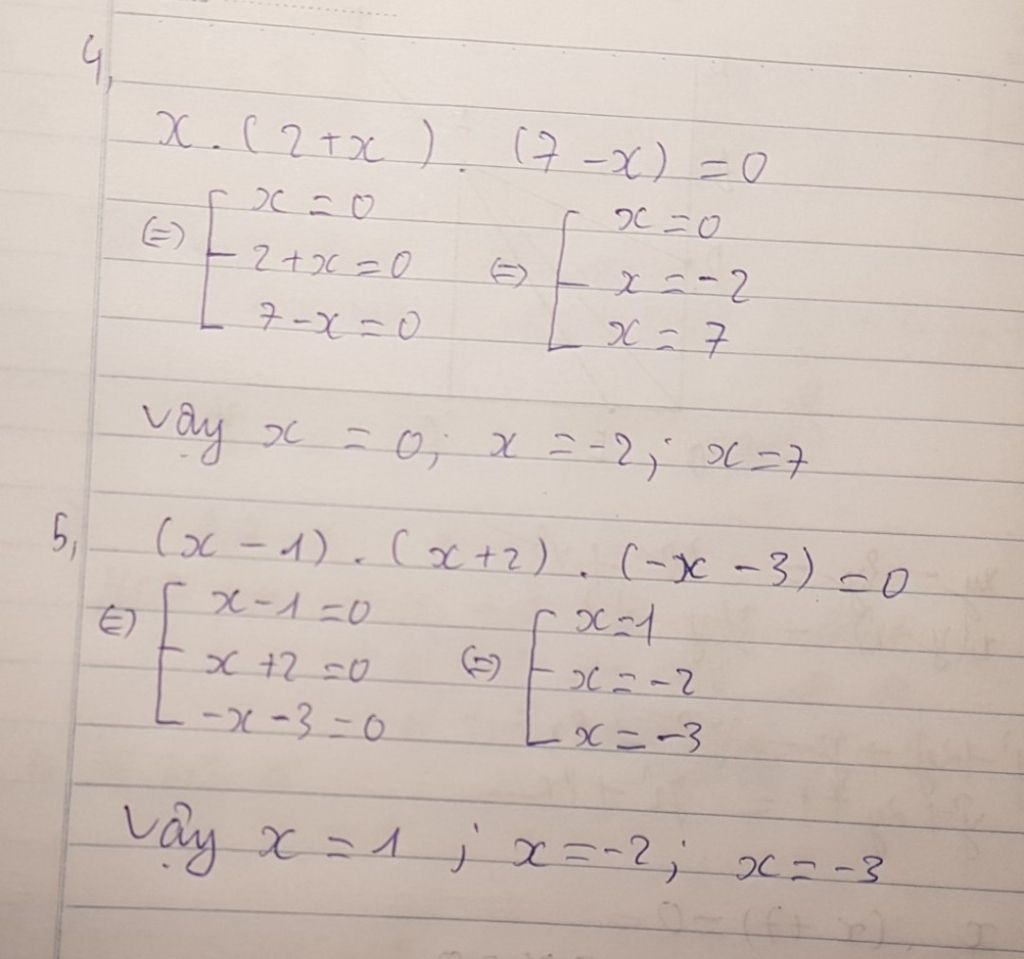 4,
x . ( 2 + x ) . (7 - x) = 0
⇔ [ x = 0 ⇔ [ x = 0
2 + x = 0 x = -2
7 - x = 0 x = 7
Vậy x = 0; x = -2; x = 7
5, (x - 1) . (x + 2) . (-x - 3) = 0
⇔ [ x - 1 = 0 ⇔ [ x = 1
x + 2 = 0 x = -2
-x - 3 = 0 x = -3
Vậy x = 1 ; x = -2; x = -3